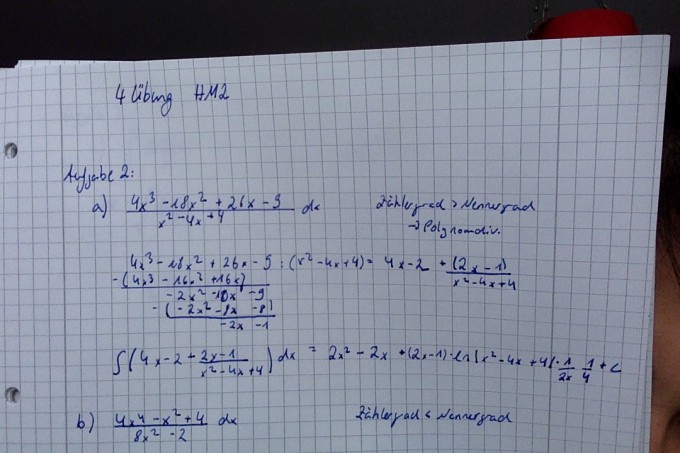 4 Übung HM2
Aufgabe 2:
a) 4x³ - 18x² + 26x - 9 / x² - 4x + 4 dx Zählergrad > Nennergrad
→ Polynomdiv.
4x³ - 18x² + 26x - 9 : (x² - 4x + 4) = 4x - 2 + (2x - 1) / x² - 4x + 4
- (4x³ - 16x² + 16x)
- 2x² 10x - 9
- (- 2x² - 8x - 8)
- 2x - 1
∫ (4x - 2 + 2x - 1 / x² - 4x + 4) dx = 2x² - 2x + (2x - 1) · ln |x² - 4x + 4| · 1/2x 1/4 + c
b) 4x⁴ - x² + 4 / 8x² - 2 dx Zählergrad < Nennergrad